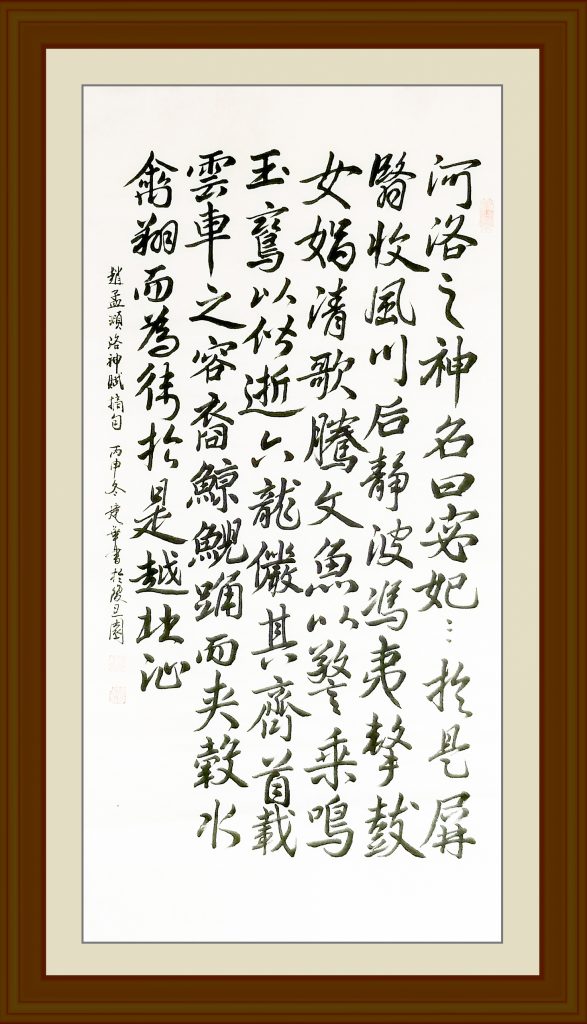 河洛之神名曰宓妃…於是屏
翳收風川后靜波馮夷擊鼓
女媧清歌騰文魚以警乘鳴
玉鸞以偕逝六龍儼其齊首載
雲車之容裔鯨鯢踊而夾轂水
禽翔而為衛於是越北沚
趙孟頫洛神賦摘句 丙申冬 書於復旦園